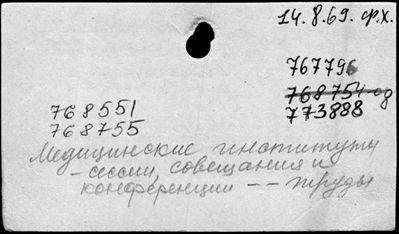 14.8.69. ф.х.
767796
768754-од
773888
768551
768755
Медицинские институты
- сессии, совещания и
конференции -- труды